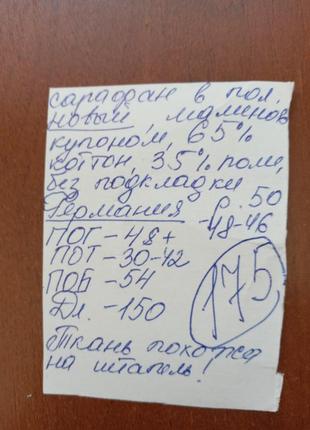 сарафан в пол,
новый, малинов
купоном, 65%
коттон, 35% поли,
без подкладки
Германия р. 50
48-46
ПОГ - 48+
ПОТ - 30-42
ПОБ - 54
Дл. - 150
175
Ткань похожа
на штапель!